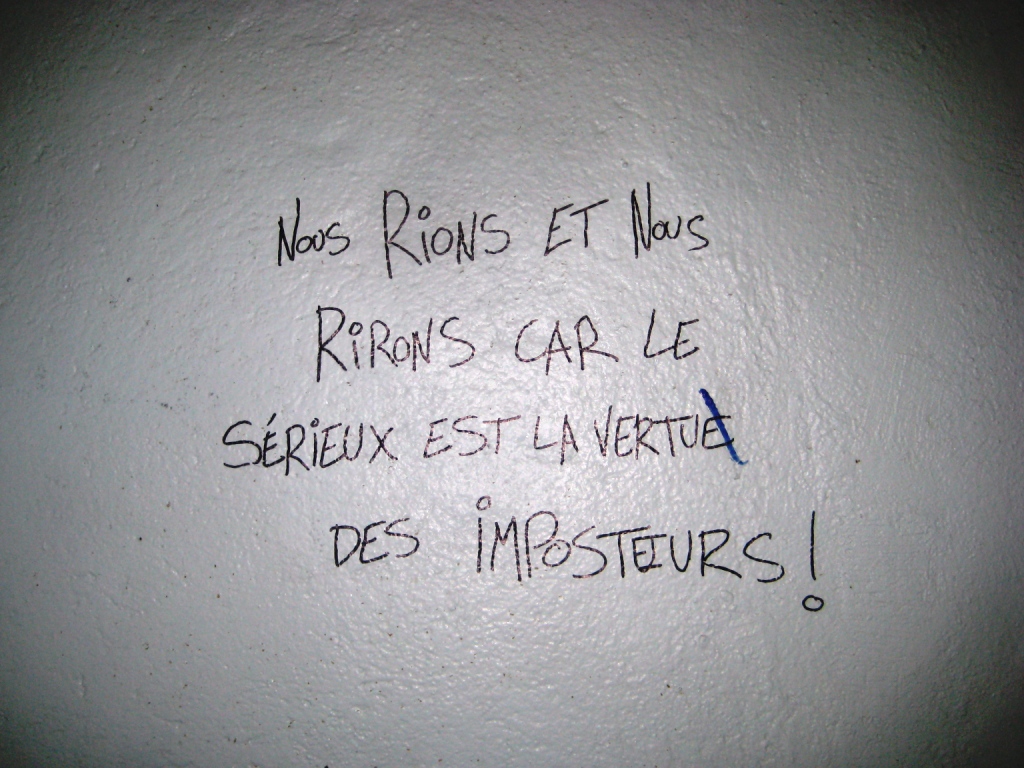 Nous Rions ET Nous
RiRONS CAR LE
SÉRiEUX EST LA VERTU
DES iMPOSTEURS !